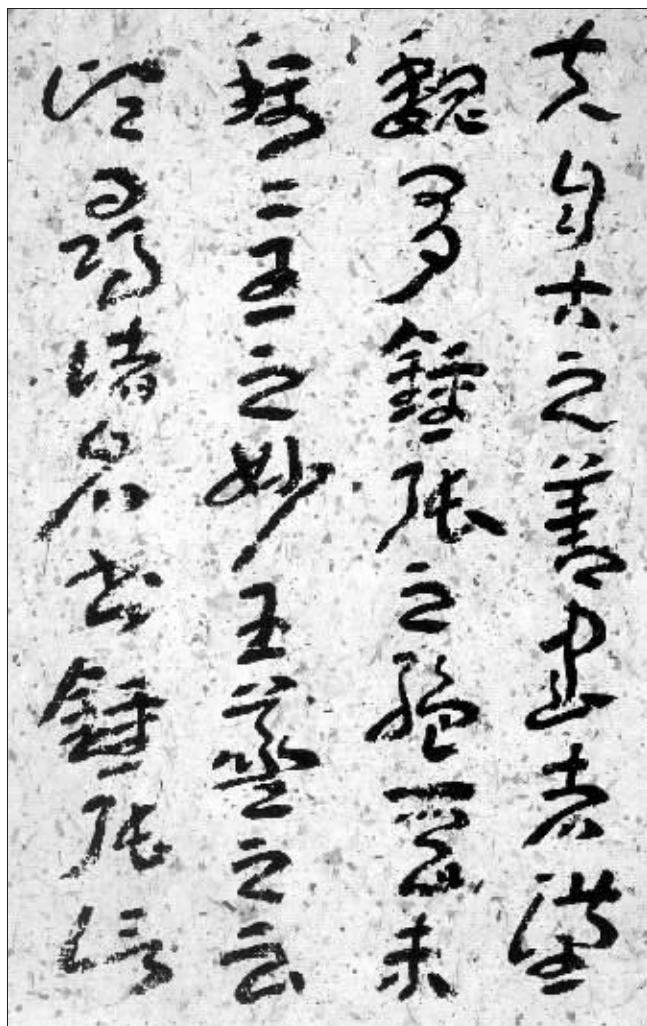 夫自古之善書者漢
魏有鍾張之絕晉末
稱二王之妙王羲之云
頃尋諸名書鍾張信